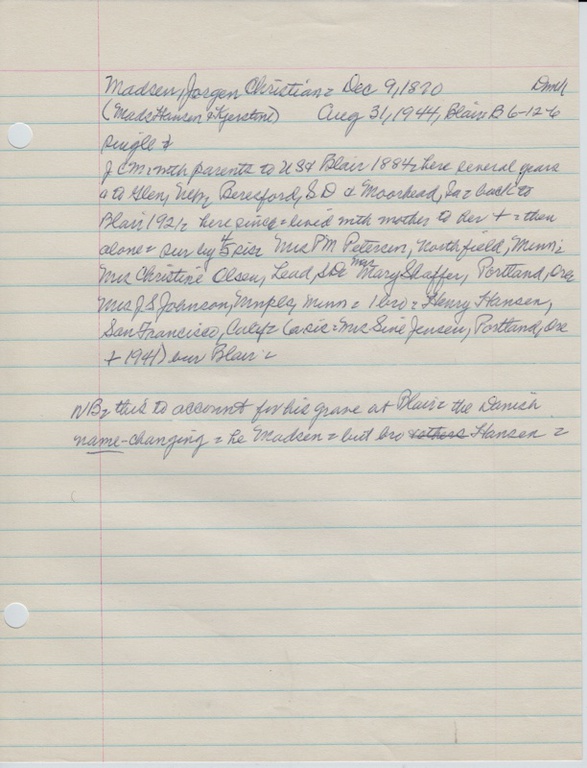 Madsen, Jorgen Christian = Dec 9, 1870 Dmk
(Mads Hansen & Kjerstine) Aug 31, 1944, Blair B 6-12-6
single &
J C M = with parents to USA Blair 1884 = here several years
= to Glen, Nebr, Beresford, S.D & Moorhead, Ia = back to
Blair 1921 = here since = lived with mother to her + = then
alone = sur by 4 sis = Mrs P M Petersen, Northfield, Minn =
Mrs Christine Olsen, Lead, S D = Mrs Mary Shaffer, Portland, Ore
Mrs J S Johnson, Mnpls, Minn = 1 bro = Henry Hansen,
San Francisco, Calif = (a sis = Mrs Sine Jensen, Portland, Ore
+ 1941) bur Blair =
NB = this to account for his grave at Blair = the Danish
name-changing = he Madsen = but bro Hansen =